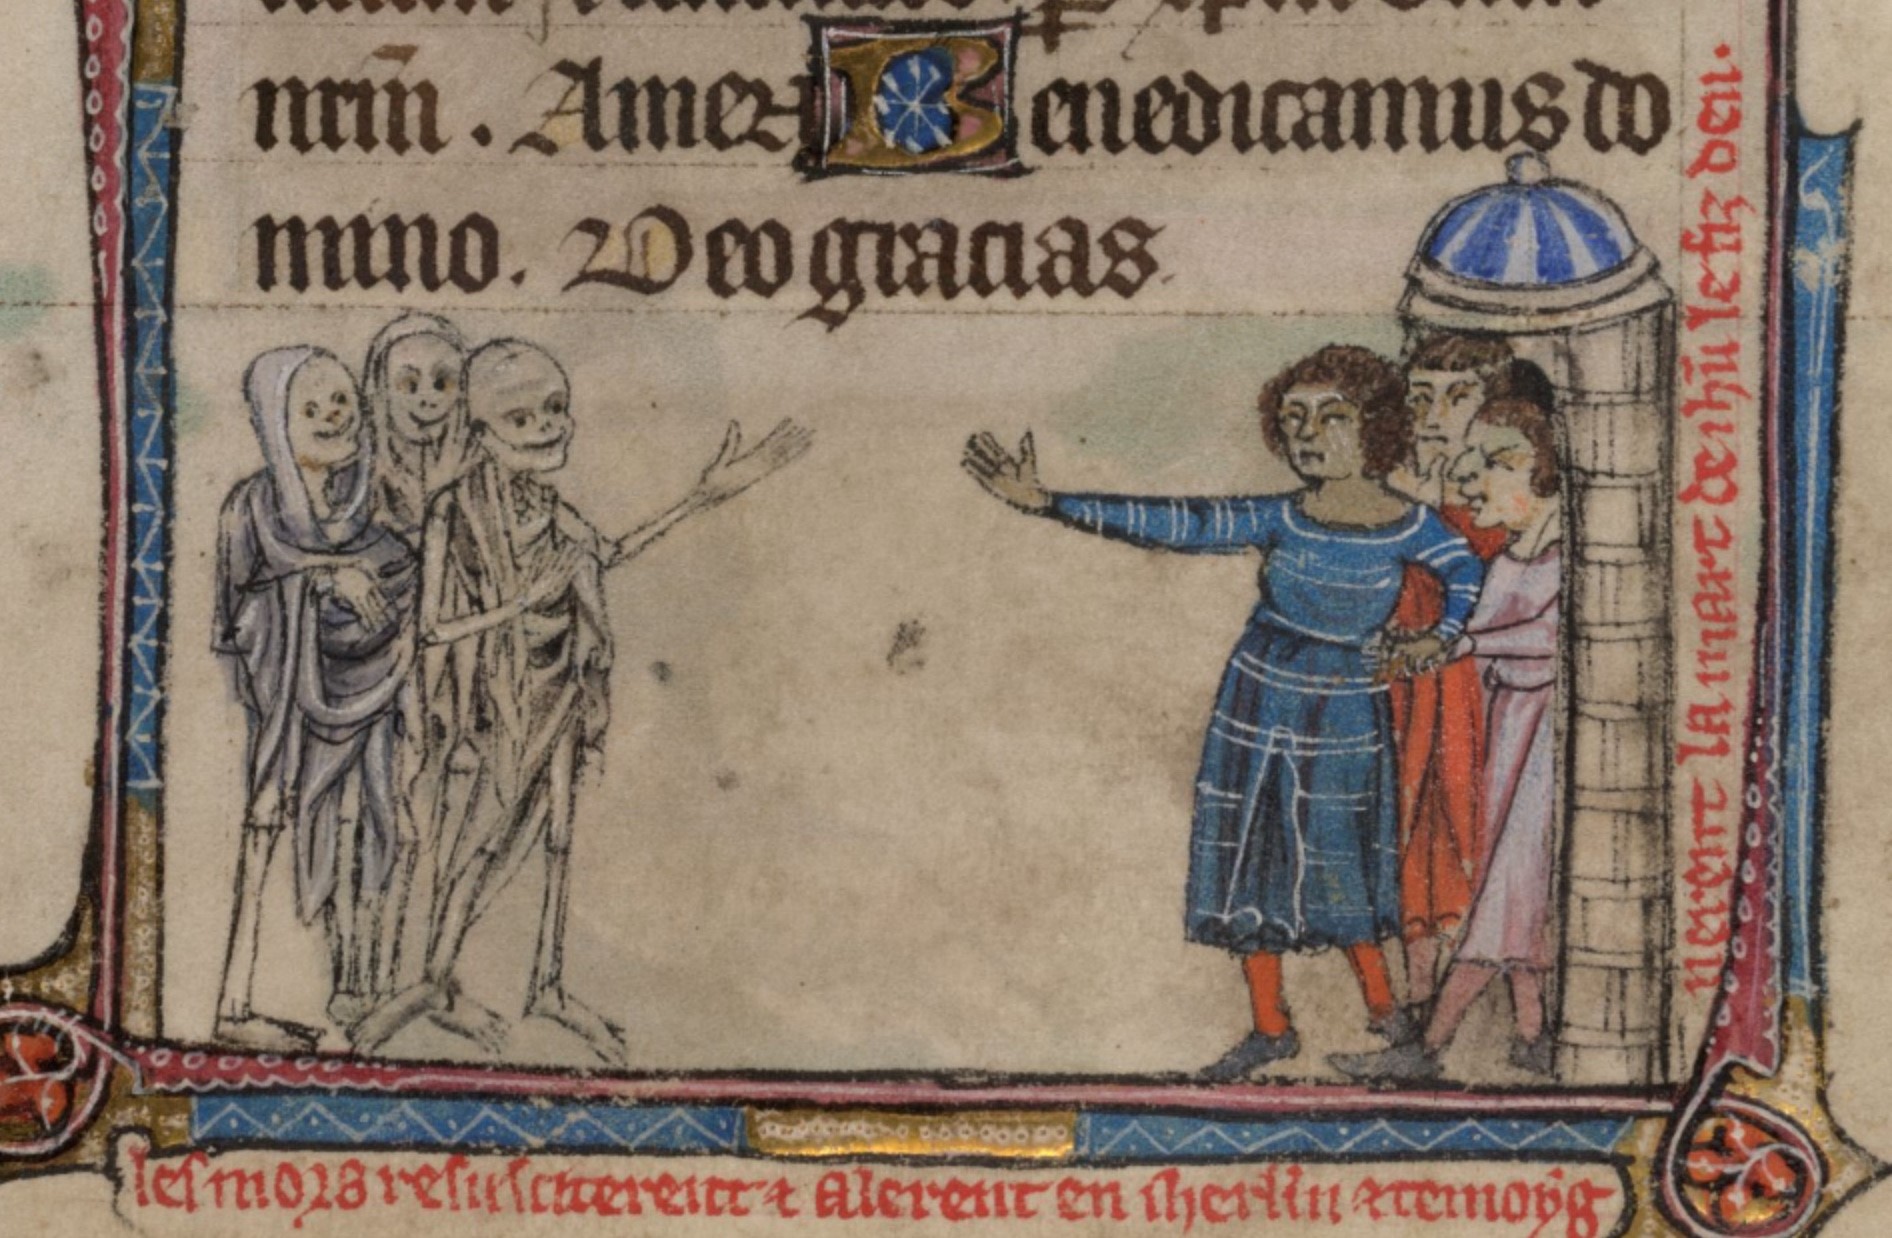 nr̄m̄. Amen Benedicamus do
mino. Deo gracias.
les mors resusciterent & alerent en iherl̄m & temoyg
nerent la mort de ih̄u le fiz deu.